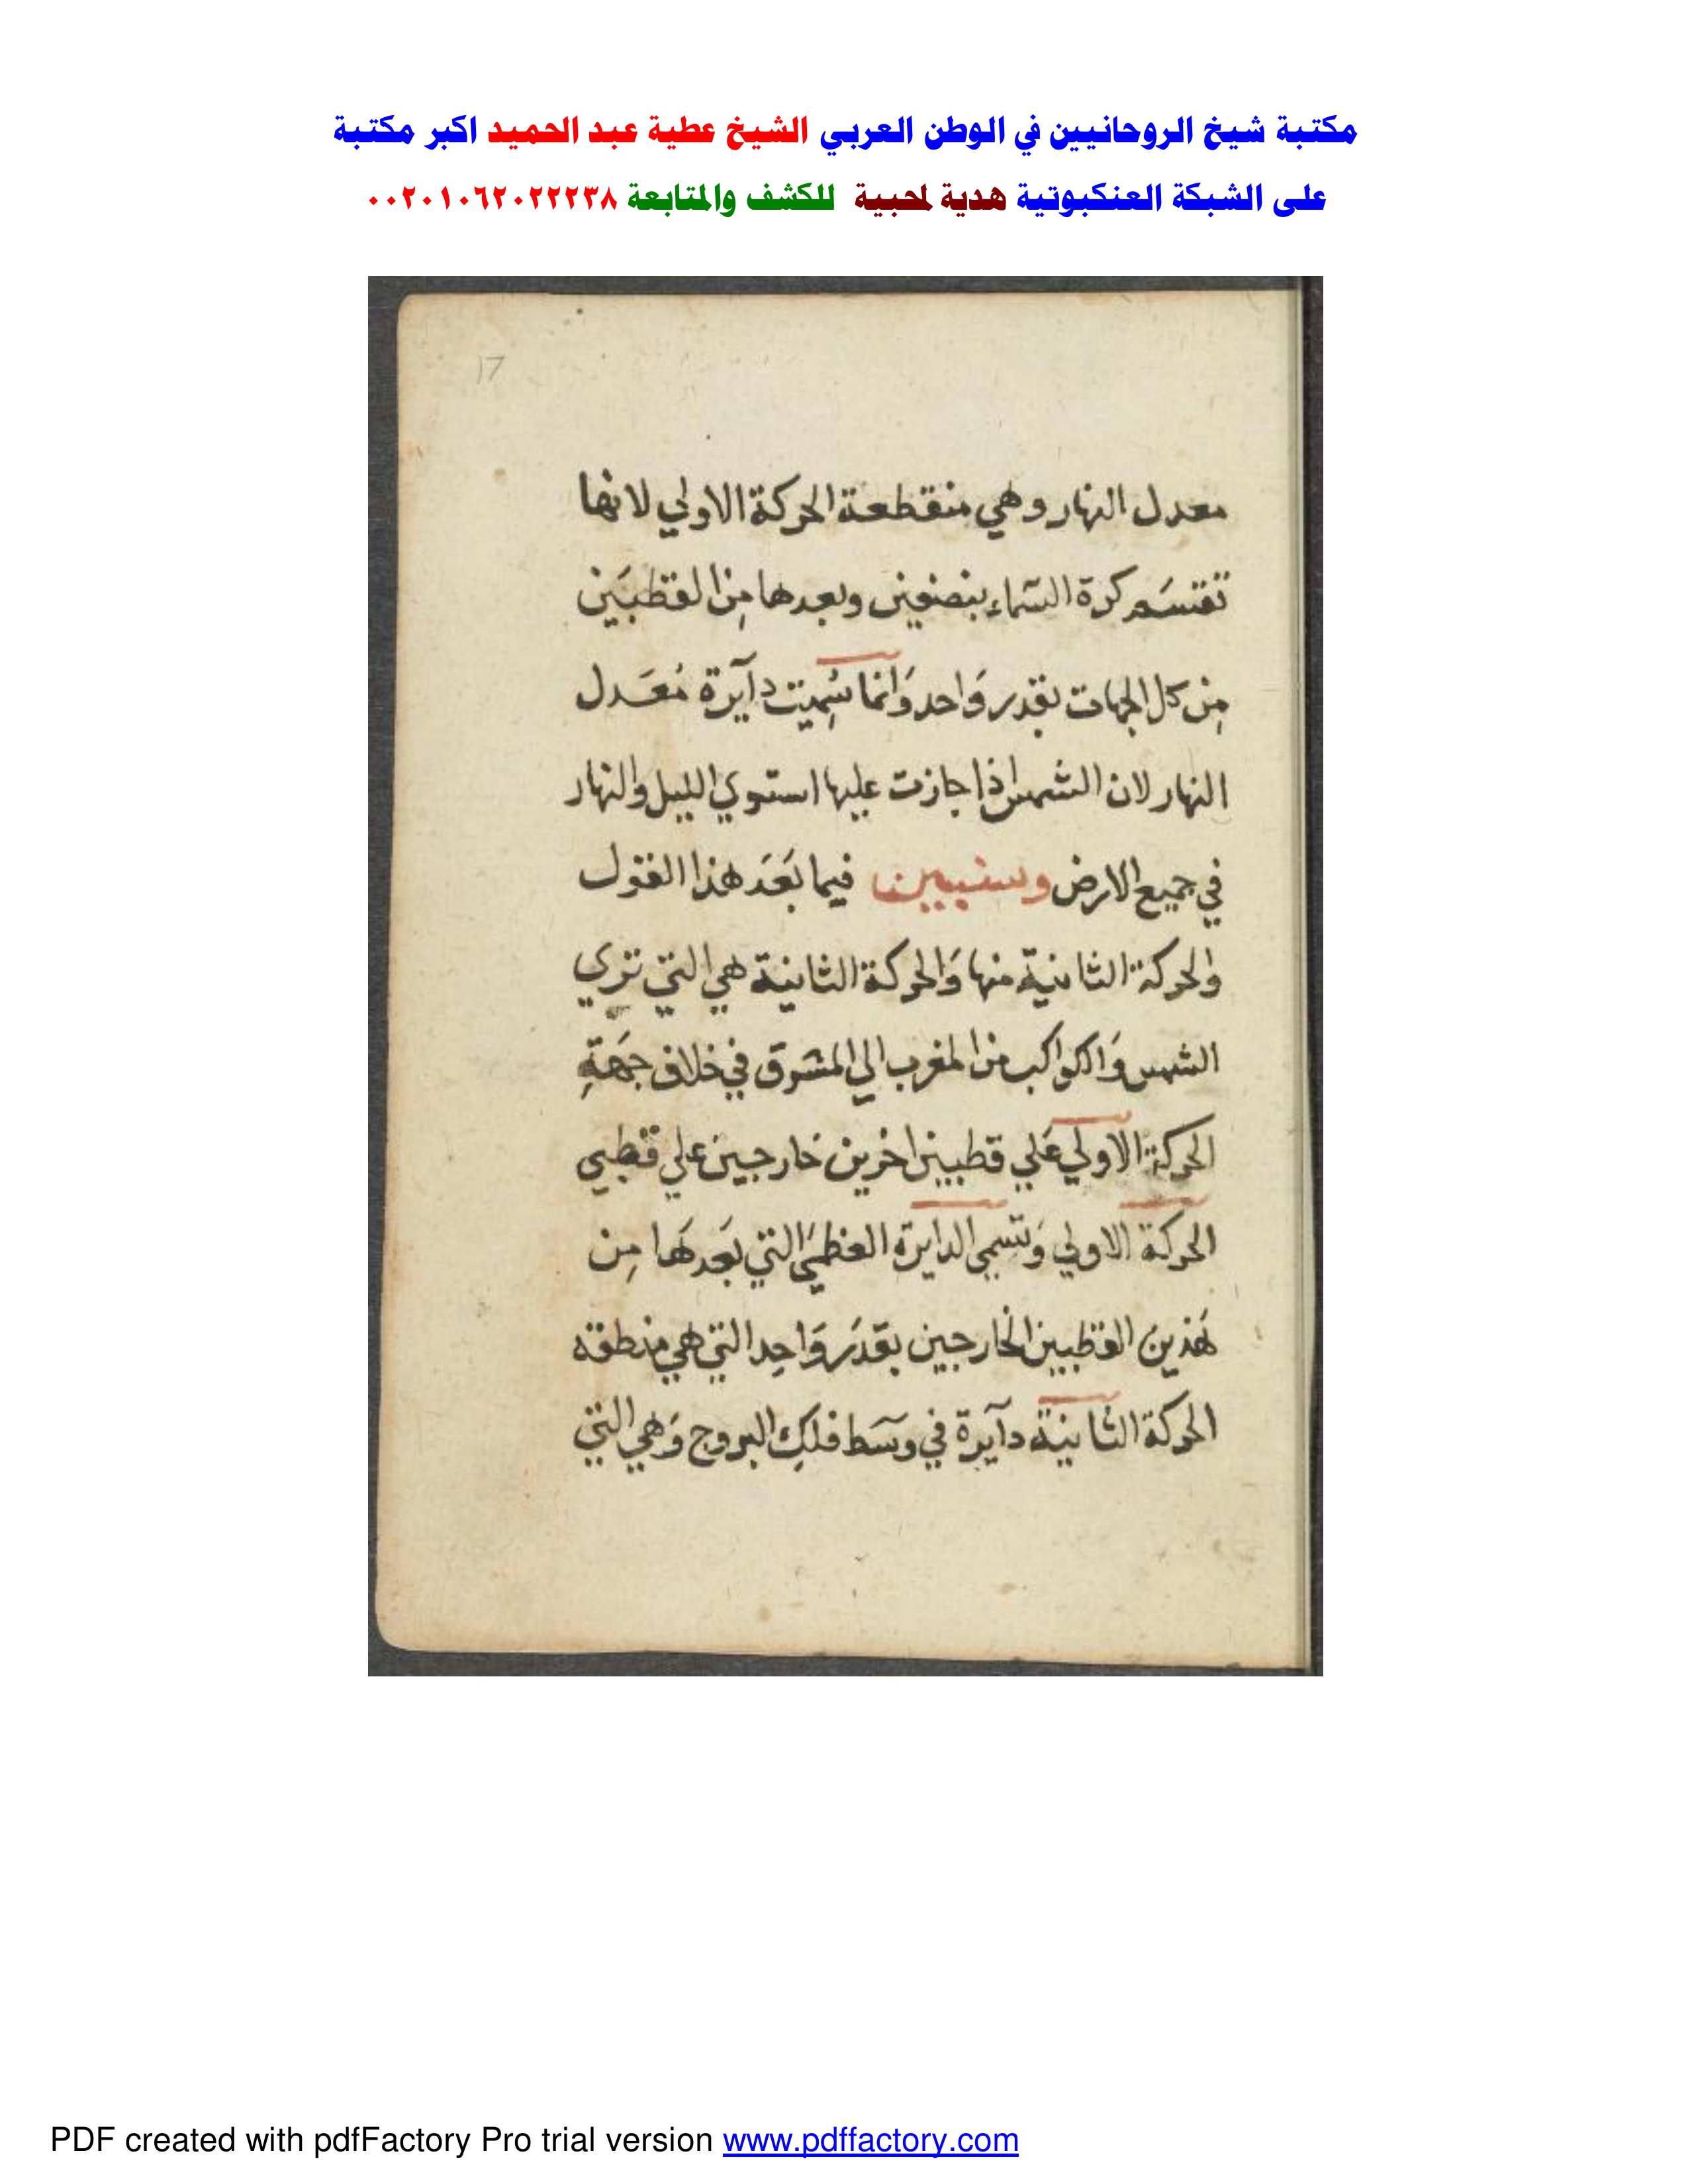 مكتبة شيخ الروحانيين في الوطن العربي الشيخ عطية عبد الحميد اكبر مكتبة
على الشبكة العنكبوتية هدية لمحبية للكشف والمتابعة ٠٠٢٠١٠٦٢٠٢٢٢٣٨
17
معدل النهار وهي منقطعة الحركة الاولي لانها
تقتسَم كرة السّماء بنصفين وبعدها مِن القطبَين
مِن كل الجهات بقدر وَاحد وَانما سُمِيت دآيرة مُعَدل
النهار لان الشمس اذا جازت عليها استوي الليل والنهار
في جميع الارض وسنبين فيما بَعَد هذا القول
والحركة الثانيّة منها وَالحركة الثانية هي التي تري
الشمس وَالكواكب من المغرب الي المشرق في خلاف جهَةِ
الحركة الاولي عَلي قطبين اخرين خارجين علي قطبي
الحركة الاولي وَتسمي الدايرة العظمَي التي بَعدهَا مِن
هَذين القطبين الخارجين بقدَر وَاحِد التي هي منطقة
الحركة الثانيّة دآيرة في وسَط فلكِ البروج وَهي التي
PDF created with pdfFactory Pro trial version www.pdffactory.com